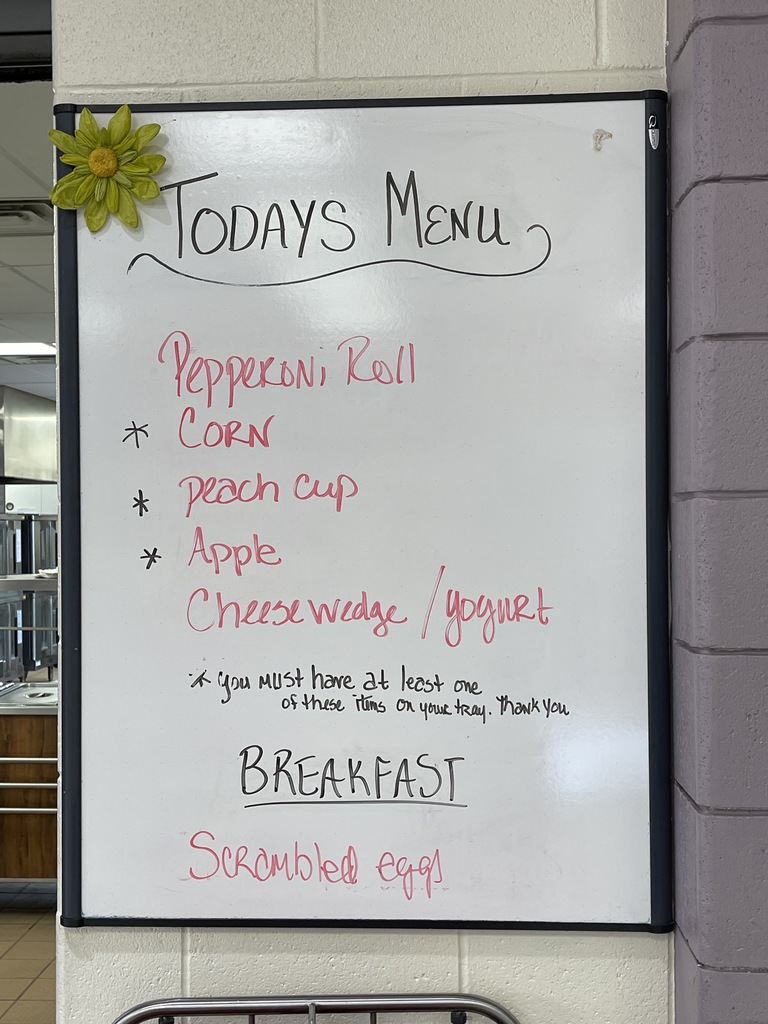 TODAYS MENU
Pepperoni Roll
* CORN
* peach cup
* Apple
Cheese wedge / yogurt
* you must have at least one
of these items on your tray. Thank you
BREAKFAST
Scrambled eggs